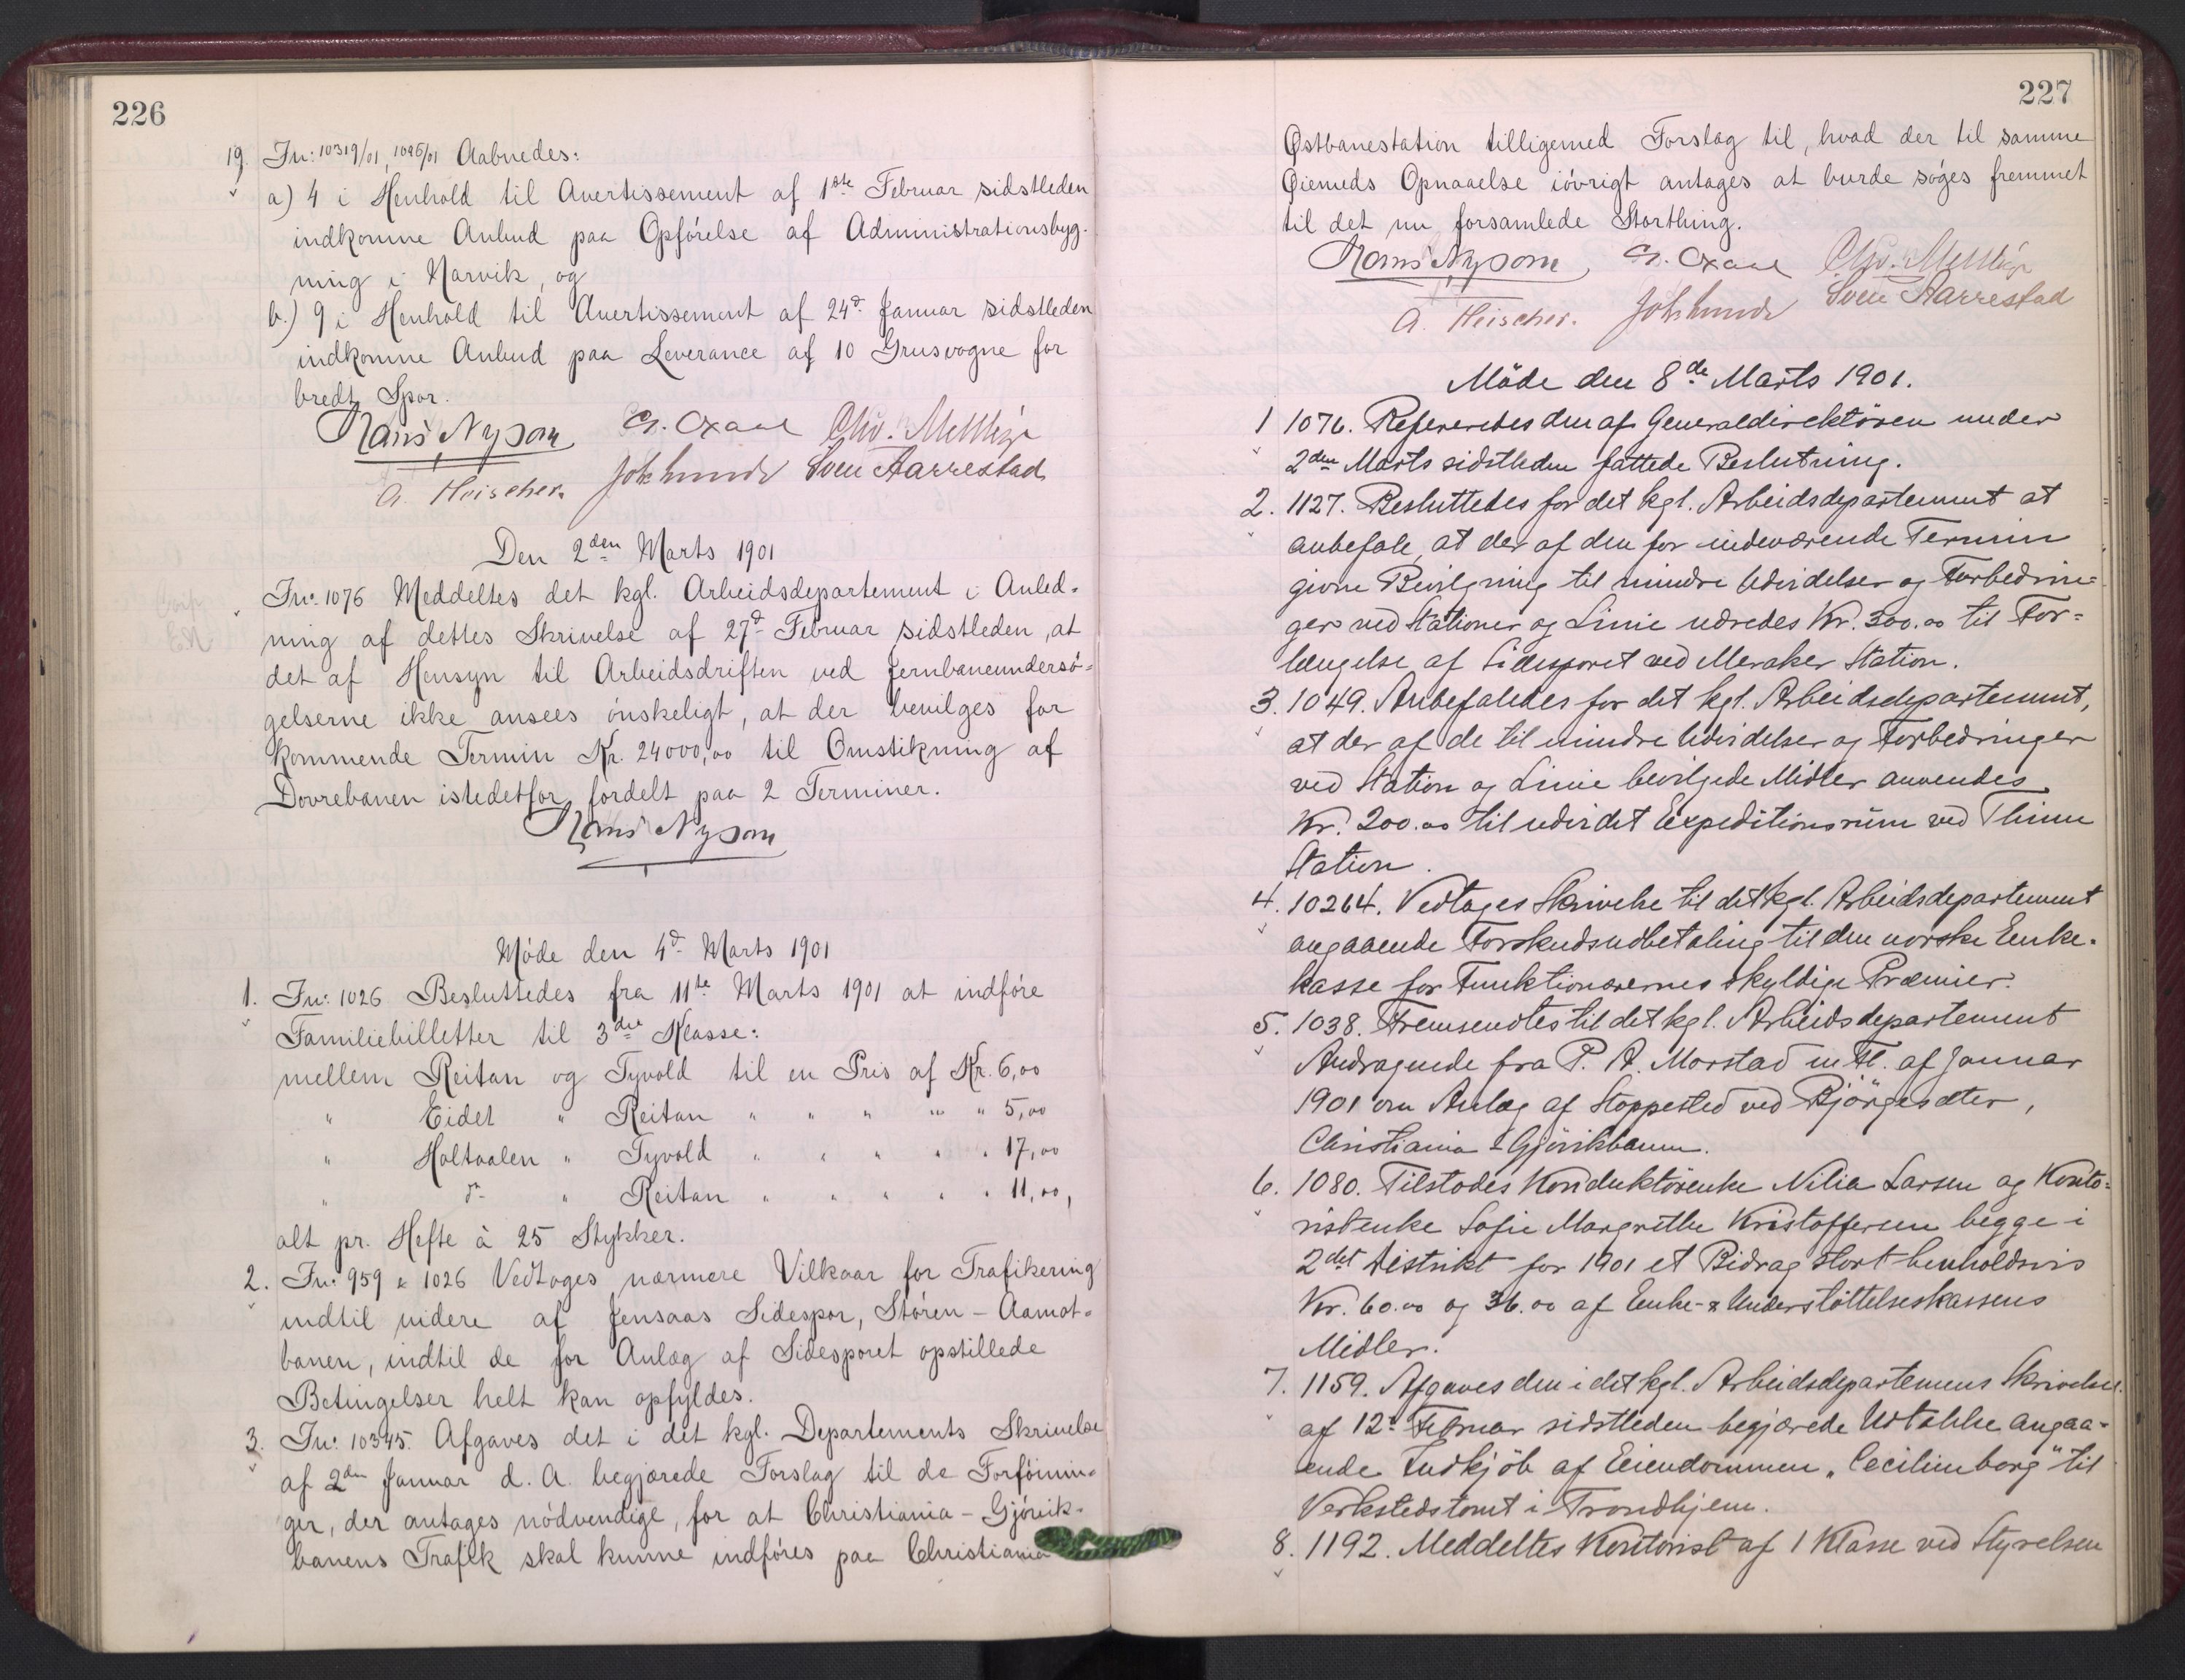 226
19. Jn: 10319/01, 1096/01 Aabnedes:
a) 4 i Henhold til Avertissement af 1ste Februar sidstleden
indkomne Anbud paa Opförelse af Administrationsbyg-
ning i Narvik, og
b.) 9 i Henhold til Avertissement af 24d. Januar sidstleden
indkomne Anbud paa Leverance af 10 Grusvogne for
bredt Spor.
Hans Nysom
Chr. Mellbye
Sven Aarrestad
Den 2den Marts 1901
Jn: 1076 Meddeltes det kgl. Arbeidsdepartement i Anled-
ning af dettes Skrivelse af 27d. Februar sidstleden, at
det af Hensyn til Arbeidsdriften ved Jernbaneundersö-
gelserne ikke ansees önskeligt, at der bevilges for
kommende Termin Kr. 24000,00 til Omstikning af
Dovrebanen istedetfor fordelt paa 2 Terminer.
Hans Nysom
Möde den 4d. Marts 1901
1. Jn: 1026 Besluttedes fra 11te Marts 1901 at indföre
Familiebilletter til 3die Klasse:
mellem Reitan og Tyvold til en Pris af Kr. 6,00
" Eidet " Reitan " " " " " 5,00
" Holtaalen " Tyvold " " " " " 17,00
" do " Reitan " " " " " 11,00,
alt pr. Hefte à 25 Stykker.
2. Jn: 959 & 1026 Vedtoges nærmere Vilkaar for Trafikering
indtil videre af Jensaas Sidespor, Stören - Aamot-
banen, indtil de for Anlæg af Sidesporet opstillede
Betingelser helt kan opfyldes.
3. Jn: 10345. Afgaves det i det kgl. Departements Skrivelse
af 2den Januar d. A. begjærede Forslag til de Forföinin-
ger, der antages nödvendige, for at Christiania - Gjövik-
banens Trafik skal kunne indföres paa Christiania
227
Østbanestation tilligemed Forslag til, hvad der til samme
Øiemeds Opnaaelse iövrigt antages at burde söges fremmet
til det nu forsamlede Storthing.
Hans Nysom
Chr. Mellbye
Sven Aarrestad
Möde den 8de Marts 1901.
1 1076. Refereredes den af Generaldirektören under
2den Marts sidstleden fattede Beslutning.
2. 1127. Besluttedes for det kgl. Arbeidsdepartement at
anbefale, at der af den for indeværende Termin
givne Bevilgning til mindre Udvidelser og Forbedrin-
ger ved Stationer og Linie udredes Kr. 300.00 til For-
længelse af Sidesporet ved Meraker Station.
3. 1049. Anbefaledes for det kgl. Arbeidsdepartement,
at der af de til mindre Udvidelser og Forbedringer
ved Station og Linie bevilgede Midler anvendes
Kr. 200.00 til udvidet Expeditionsrum ved
Station.
4. 10264. Vedtoges Skrivelse til det kgl. Arbeidsdepartement
angaaende Forskudsudbetaling til den norske Enke-
kasse for Funktionærernes skyldige Præmier.
5. 1038. Fremsendtes til det kgl. Arbeidsdepartement
Andragende fra P. A. Morstad m fl. af Januar
1901 om Anlæg af Stoppested ved Bjørgesæter,
Christiania - Gjövikbanen.
6. 1080. Tilstodes Konduktörenke Nilia Larsen og Konto-
ristenke Sofie Margrethe Kristoffersen begge i
2det Distrikt for 1901 et Bidrag stort henholdsvis
Kr. 60.00 og 36.00 af Enke- & Understöttelseskassens
Midler.
7. 1159. Afgaves den i det kgl. Arbeidsdepartemens Skrivelse
af 12te Februar sidstleden begjærede Udtalelse angaa-
ende Indkjöb af Eiendommen "Cecilienborg" til
Verkstedstomt i Trondhjem.
8. 1192. Meddeltes Kontorist af 1 Klasse ved Styrelsen